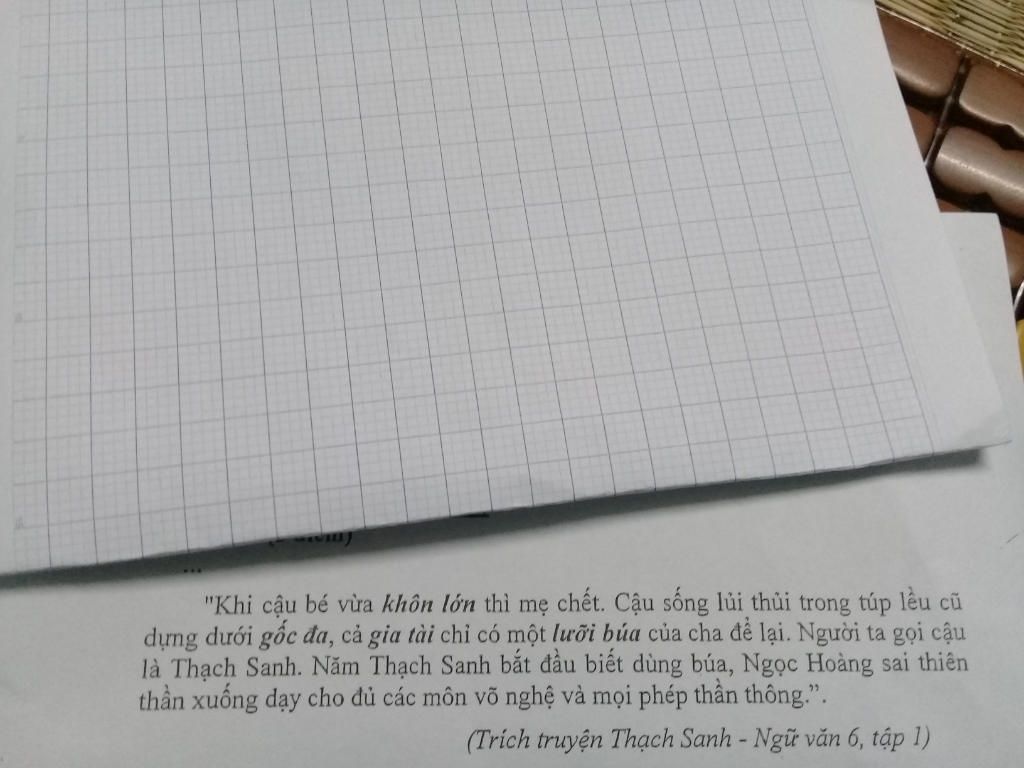 ...
"Khi cậu bé vừa khôn lớn thì mẹ chết. Cậu sống lủi thủi trong túp lều cũ
dựng dưới gốc đa, cả gia tài chỉ có một lưỡi búa của cha để lại. Người ta gọi cậu
là Thạch Sanh. Năm Thạch Sanh bắt đầu biết dùng búa, Ngọc Hoàng sai thiên
thần xuống dạy cho đủ các môn võ nghệ và mọi phép thần thông.”.
(Trích truyện Thạch Sanh - Ngữ văn 6, tập 1)